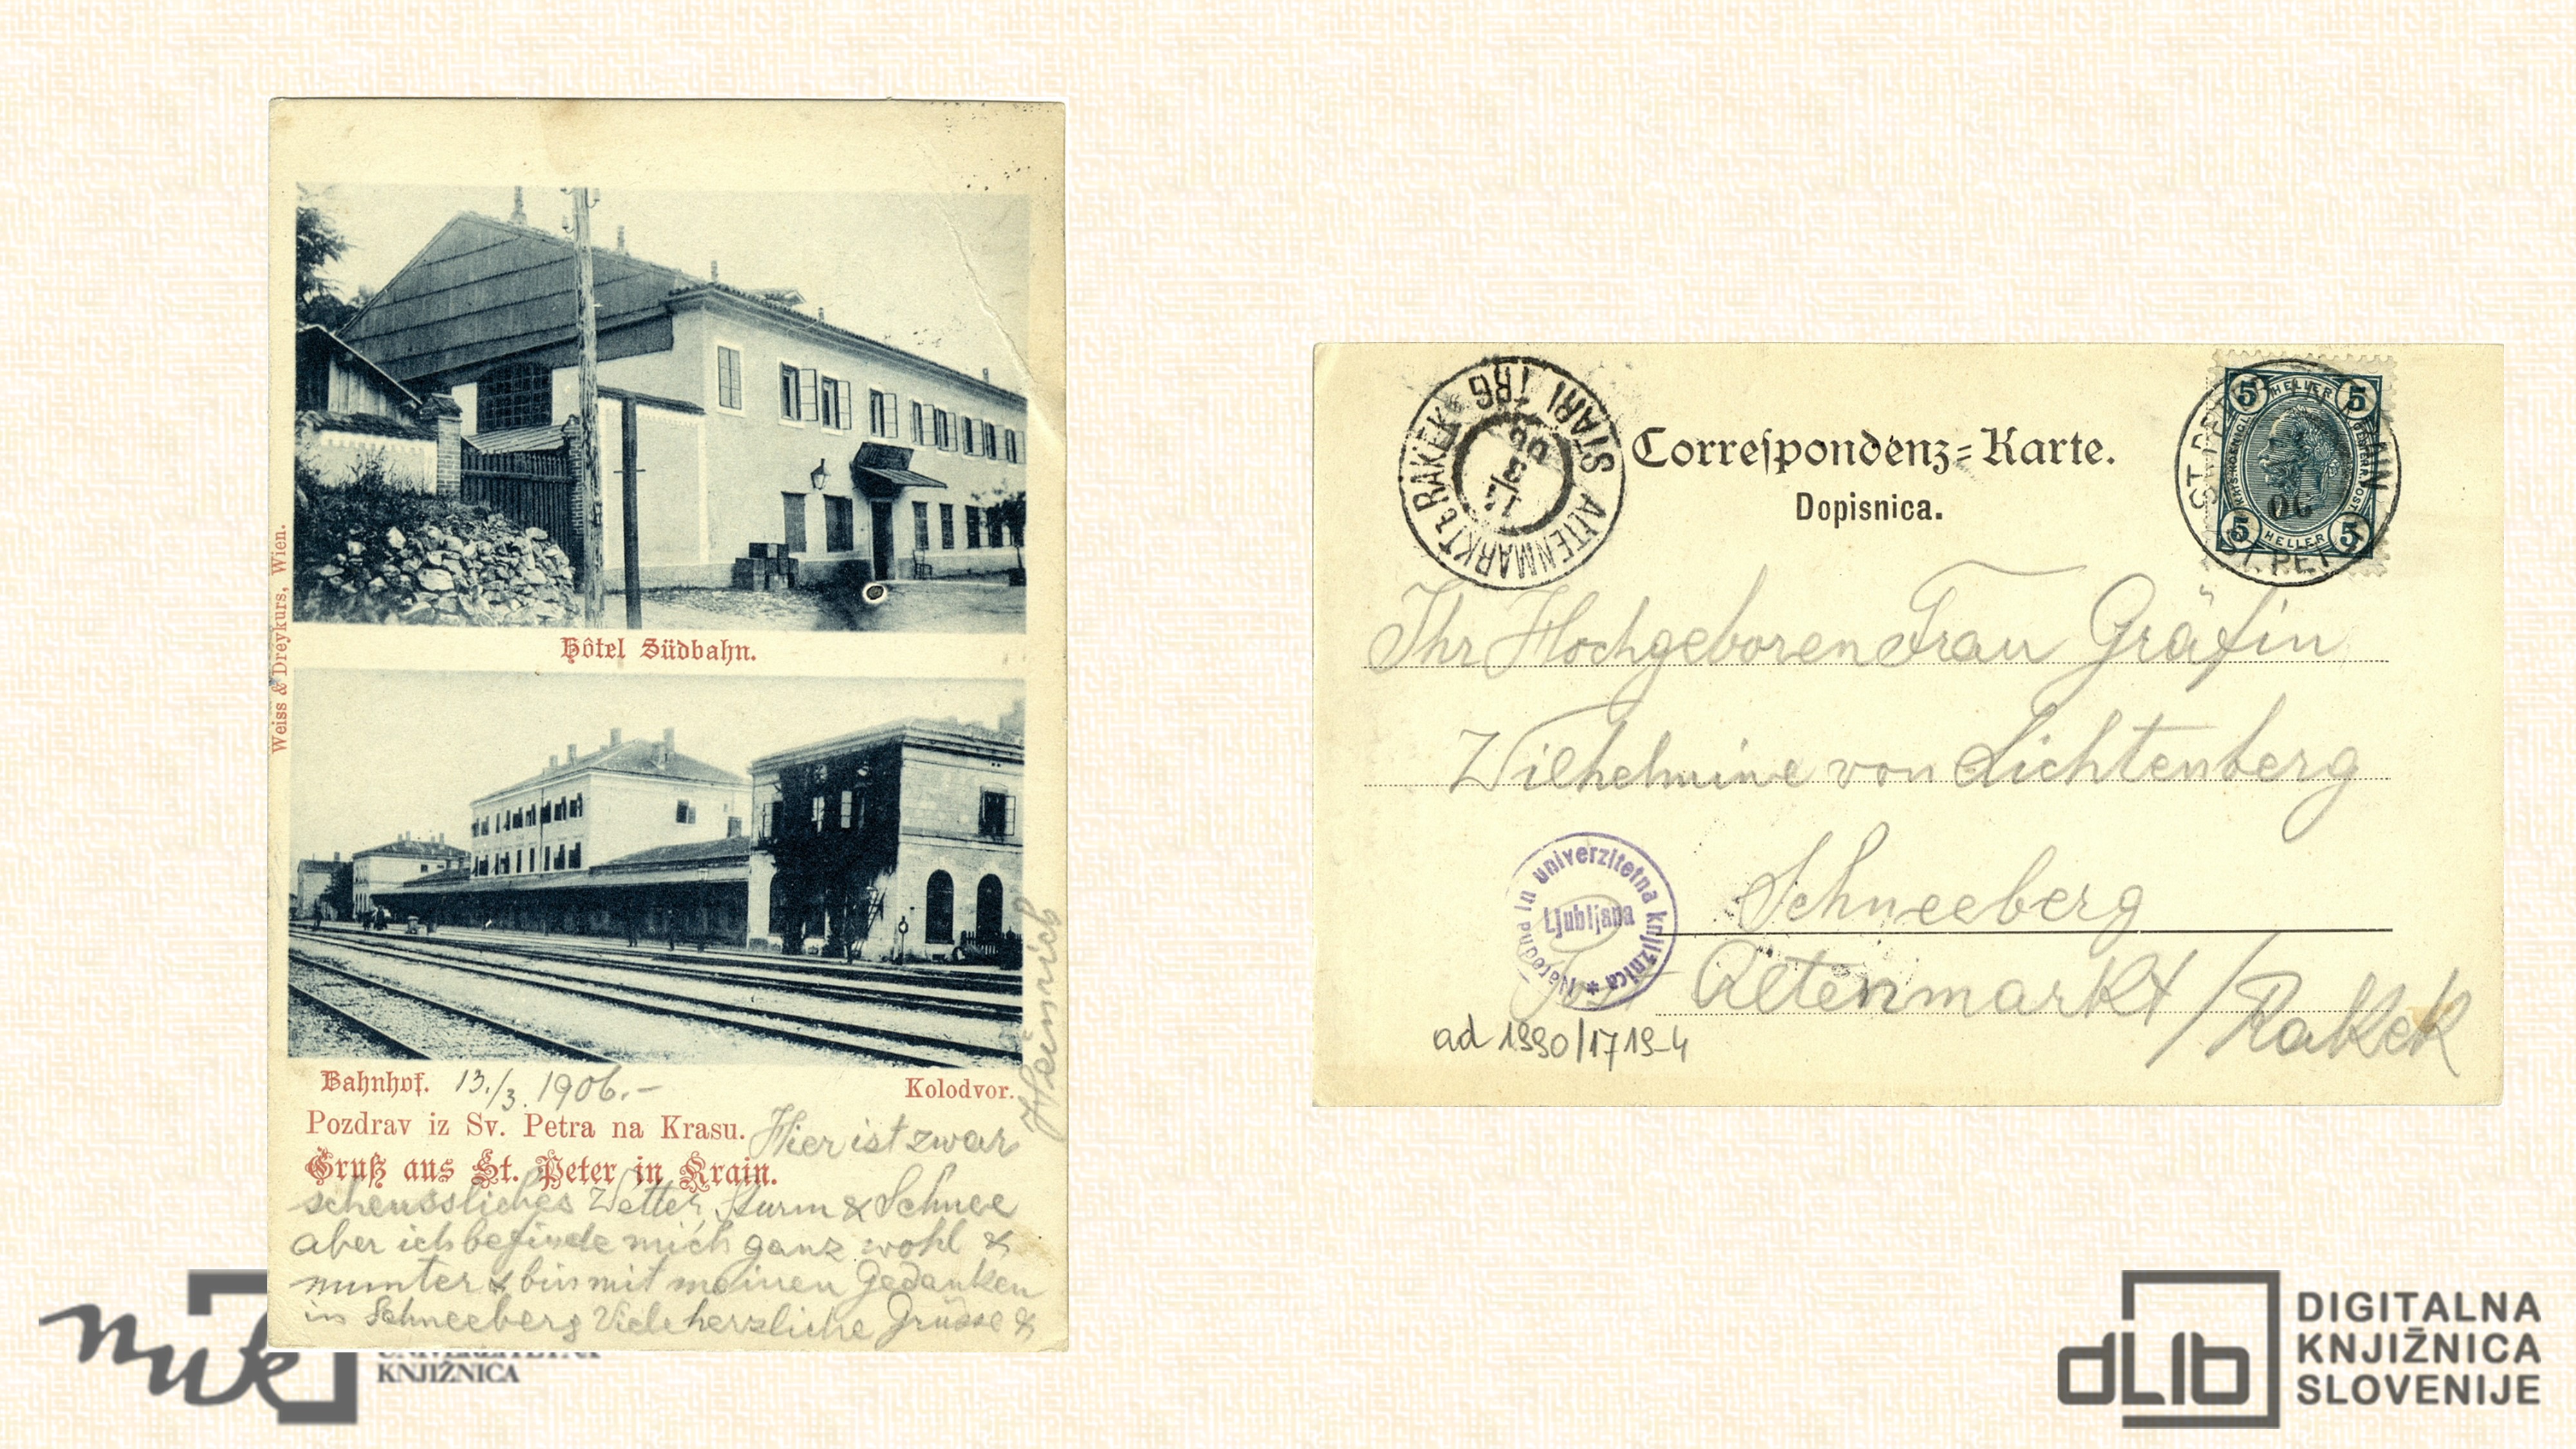 Weiss & Dreykurs, Wien.
Hôtel Südbahn.
Bahnhof. 13./3. 1906.-
Kolodvor.
Pozdrav iz Sv. Petra na Krasu.
Gruß aus St. Peter in Krain.
Hier ist zwar
scheussliches Wetter, Sturm & Schnee
aber ich befinde mich ganz wohl &
munter & bin mit meinen Gedanken
in Schneeberg Viele herzliche Grüsse &
Heinrich
KNJIŽNICA
ALTENMARKT b. RAKEK STARI TRG
Correspondenz-Karte.
Dopisnica.
5 HELLER 5
5 HELLER 5
06
Ihr Hochgeboren Frau Gräfin
Wilhelmine von Lichtenberg
Schneeberg
Post Altenmarkt / Rakek
Narodna in univerzitetna knjižnica *
Ljubljana
ad 1990/1719-4
nuk
dLib
DIGITALNA
KNJIŽNICA
SLOVENIJE